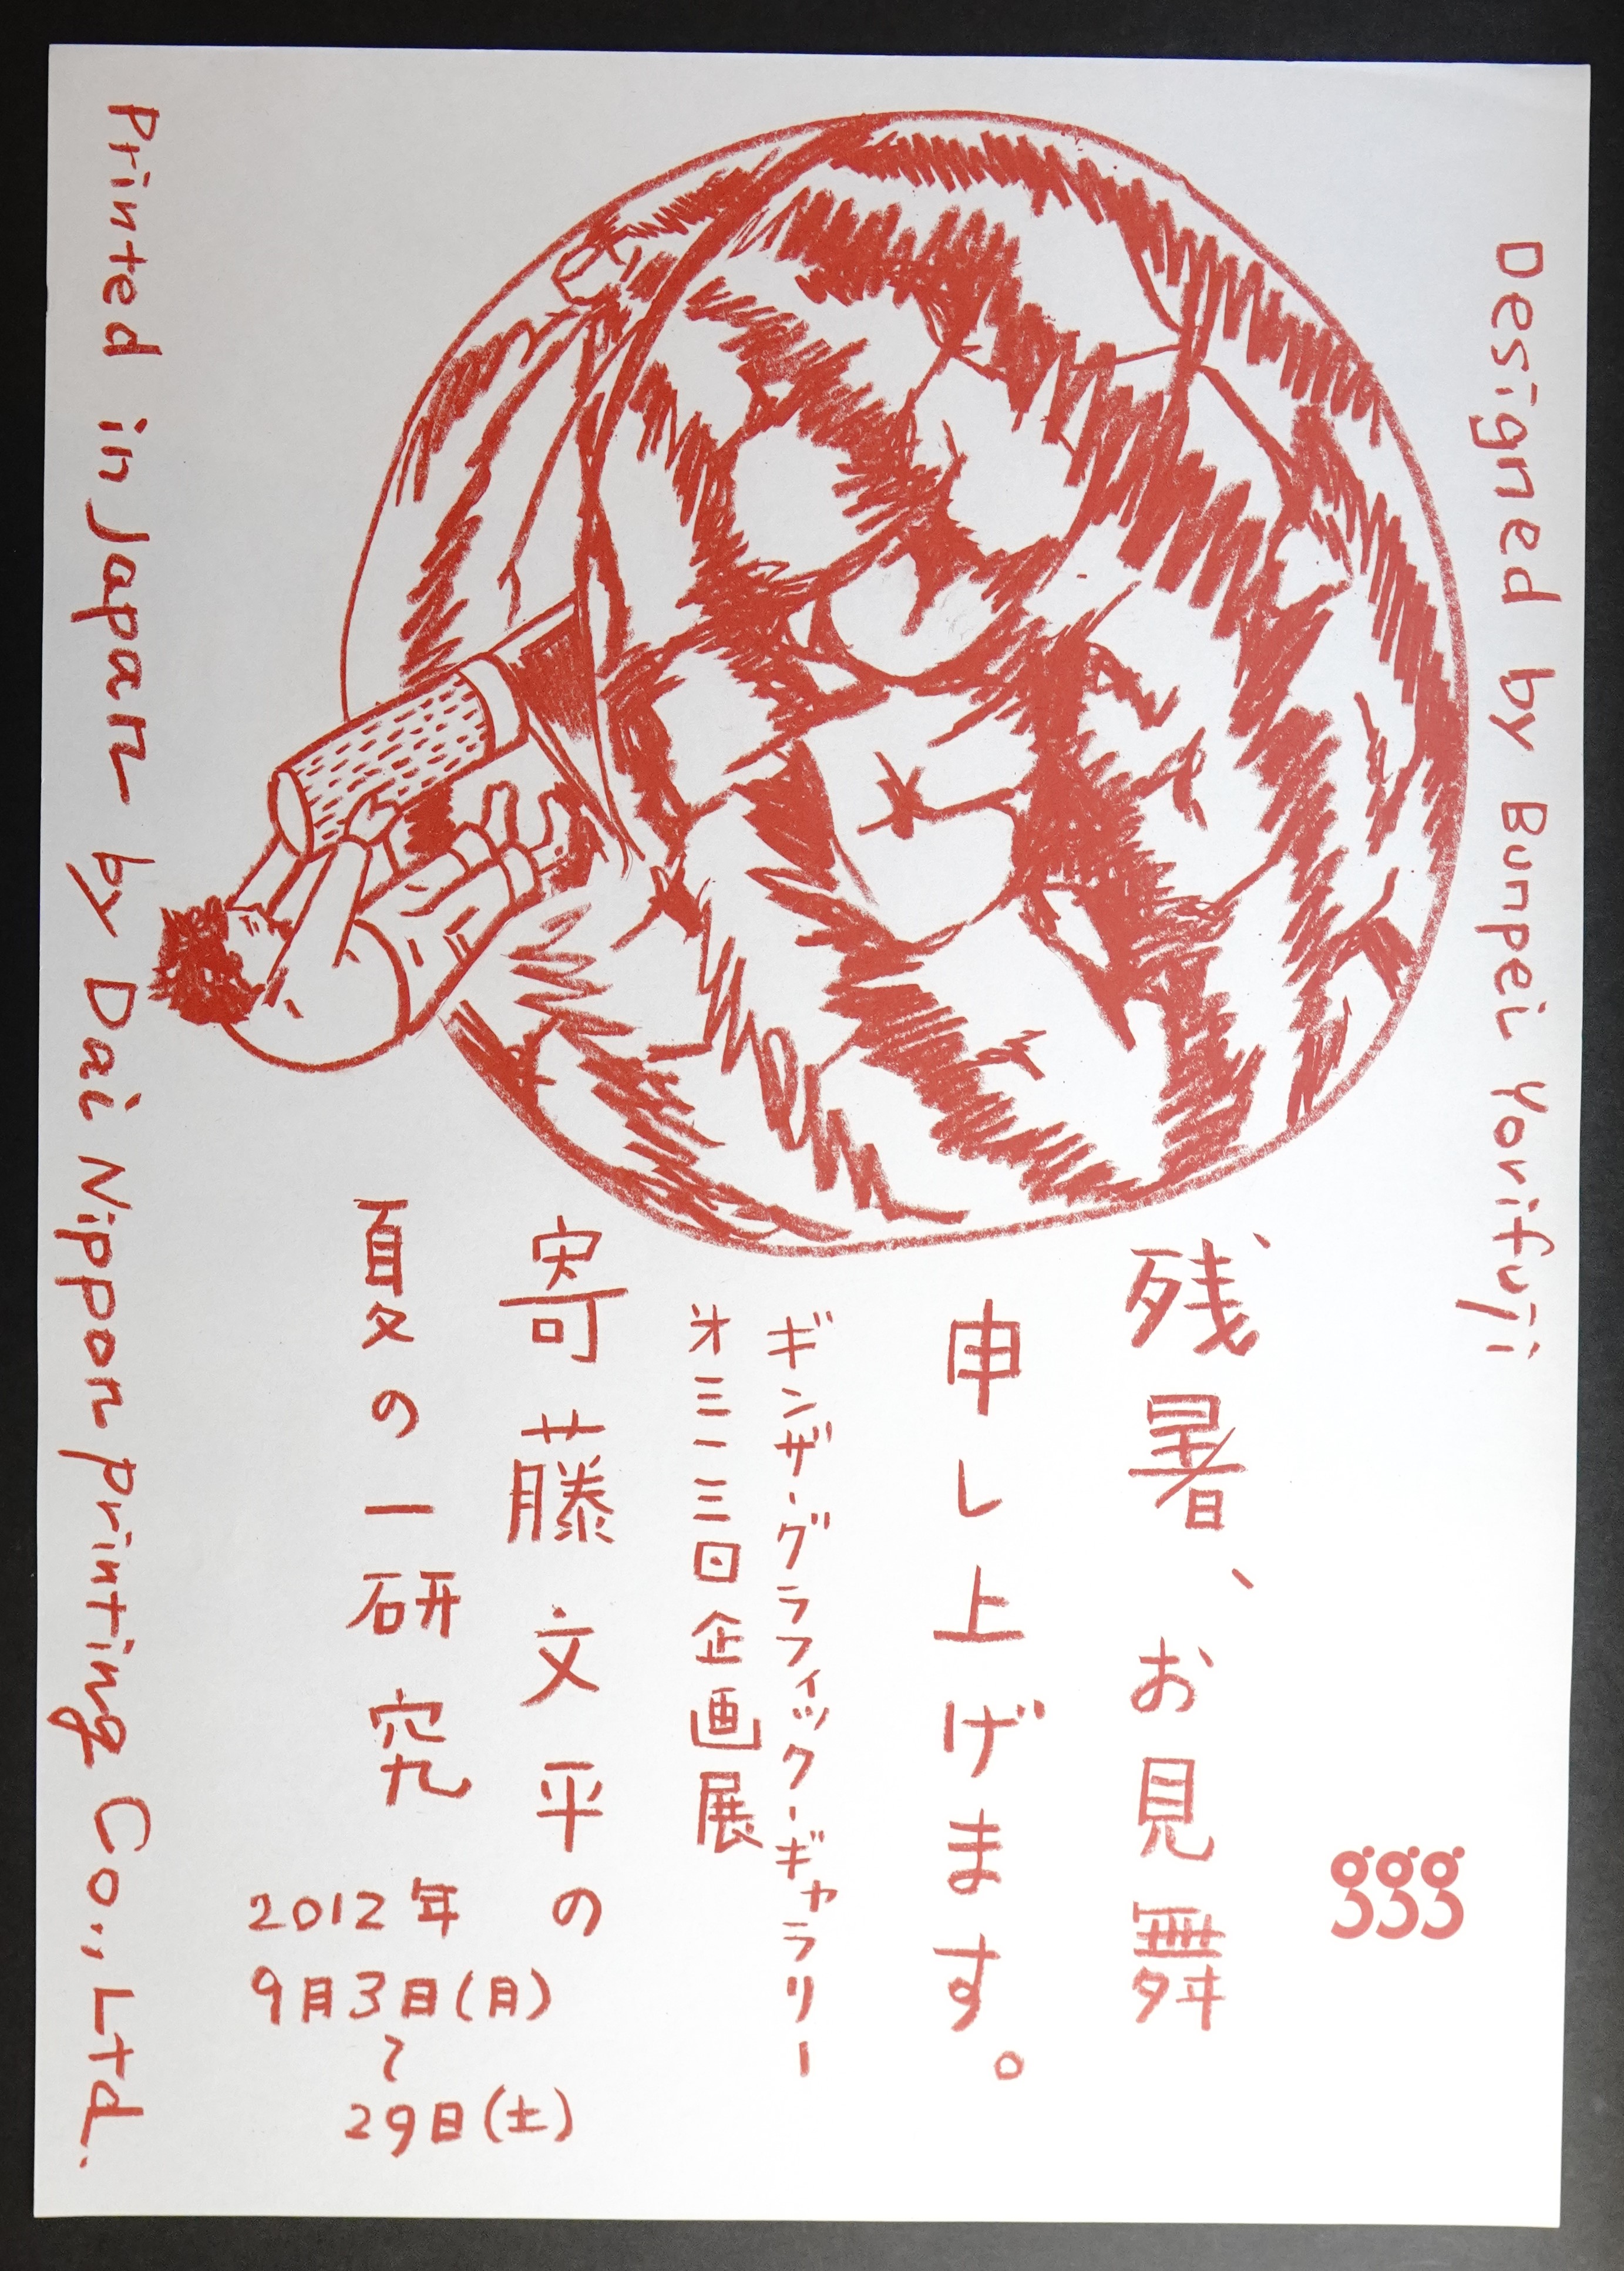 Designed by Bunpei Yorifuji
ggg
残暑、お見舞
申し上げます。
ギンザ・グラフィック・ギャラリー
才三一三回企画展
寄藤文平の
夏の一研究
2012年
9月3日(月)
〜
29日(土)
Printed in Japan by Dai Nippon Printing Co., Ltd.